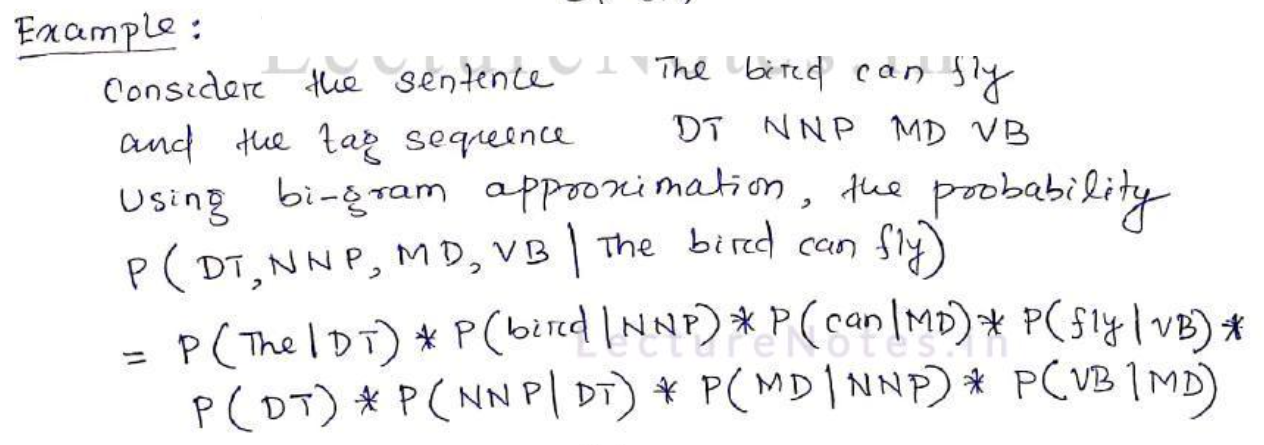 Example :
Consider the sentence The bird can fly
and the tag sequence DT NNP MD VB
Using bi-gram approximation, the probability
P ( DT, NNP, MD, VB | The bird can fly)
= P ( The | DT) * P (bird | NNP) * P ( can | MD) * P (fly | VB) *
LectureNotes.in
P ( DT) * P ( NNP | DT) * P ( MD | NNP) * P (VB | MD)